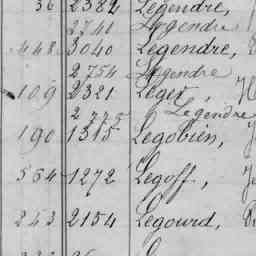 36 2382 Legendre,
2741 Legendre
448 3040 Legendre,
2754 Legendre
109 2321 Leget,
2775 Legendre
190 1315 Legobien,
564 1272 Legoff,
243 2154 Legourd,